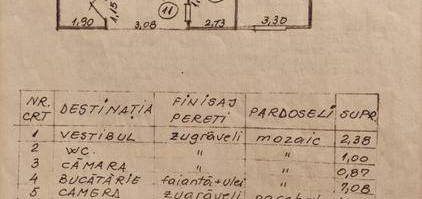 1,15
11
1,90 3,08 2,73 3,30
NR. CRT DESTINAȚIA FINISAJ PERETI PARDOSELI SUPR.
1 VESTIBUL zugrăveli mozaic 2,38
2 WC. " " 1,00
3 CĂMARA " " 0,87
4 BUCĂTĂRIE faianță+ulei " 7,08
5 CAMERA zugrăveli